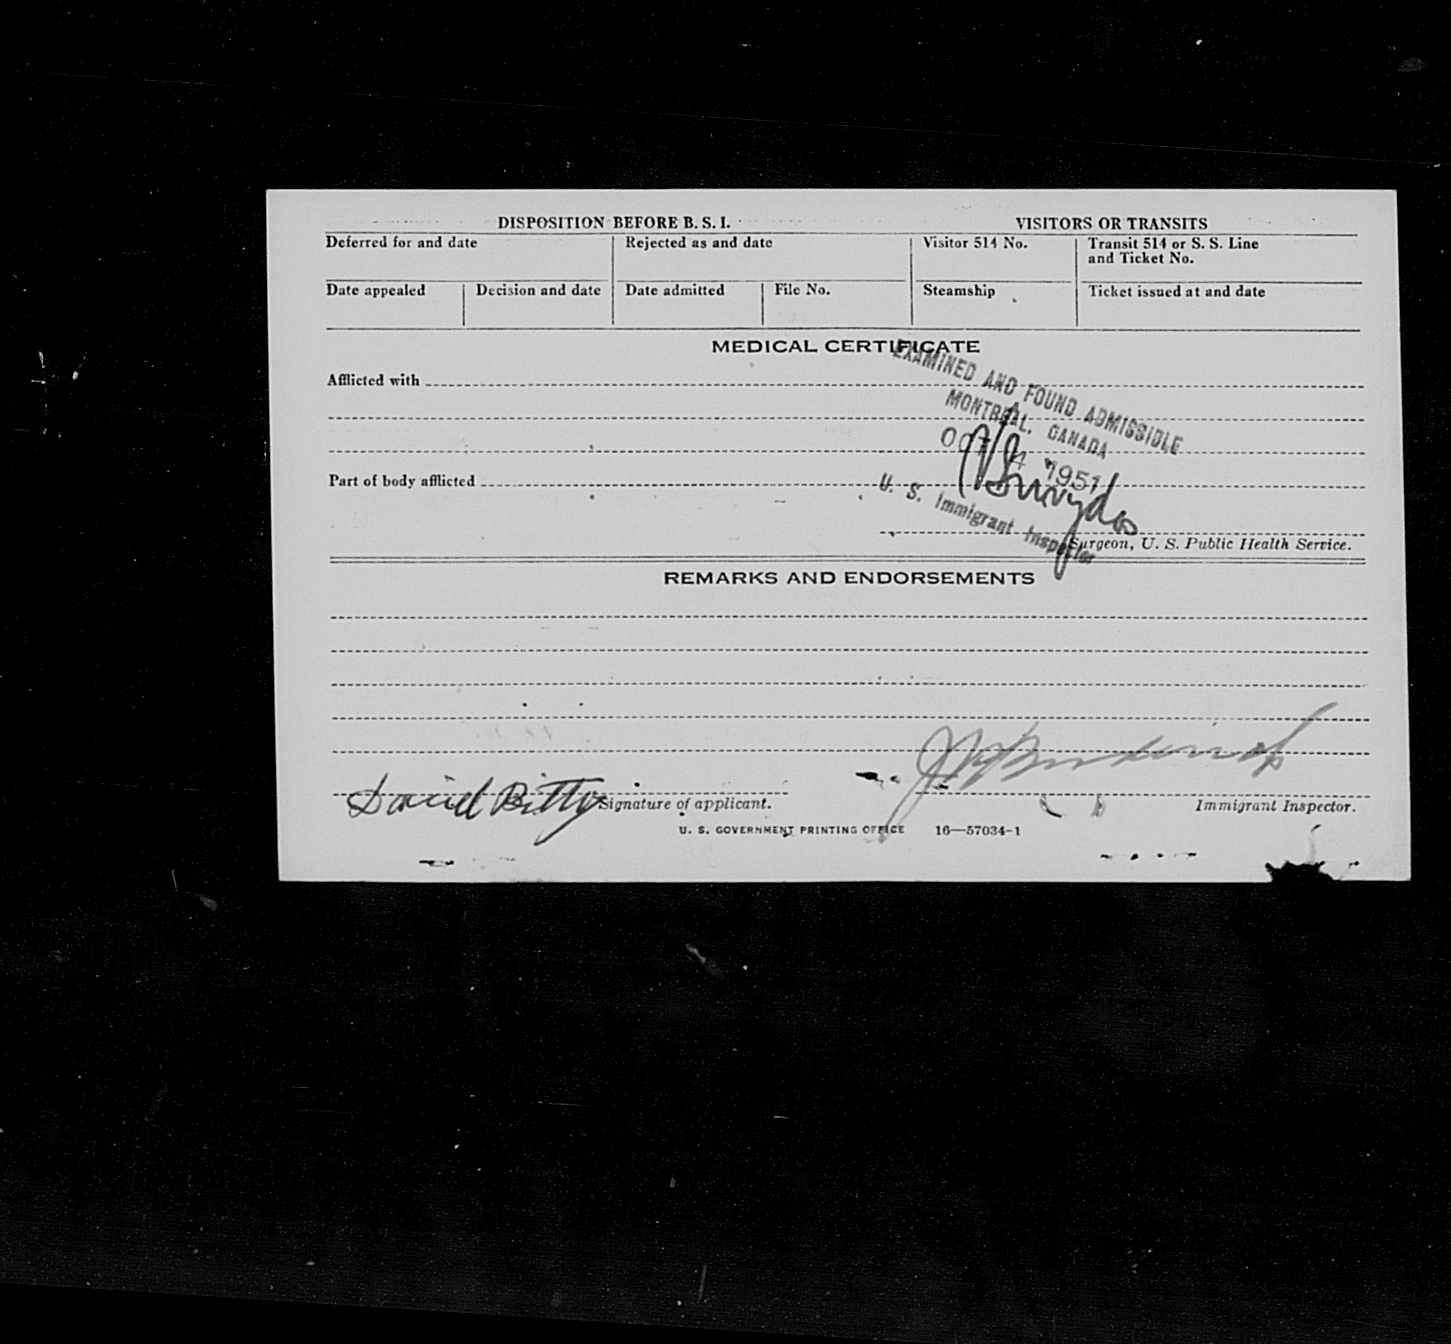 DISPOSITION BEFORE B. S. I.
VISITORS OR TRANSITS
Deferred for and date
Rejected as and date
Visitor 514 No.
Transit 514 or S. S. Line
and Ticket No.
Date appealed
Decision and date
Date admitted
File No.
Steamship
Ticket issued at and date
MEDICAL CERTIFICATE
Afflicted with
EXAMINED AND FOUND ADMISSIBLE
MONTREAL, CANADA
OCT 1951
Part of body afflicted
U. S. Immigrant Inspector
Surgeon, U. S. Public Health Service.
REMARKS AND ENDORSEMENTS
David Bitty
Signature of applicant.
Immigrant Inspector.
U. S. GOVERNMENT PRINTING OFFICE 16—57034-1